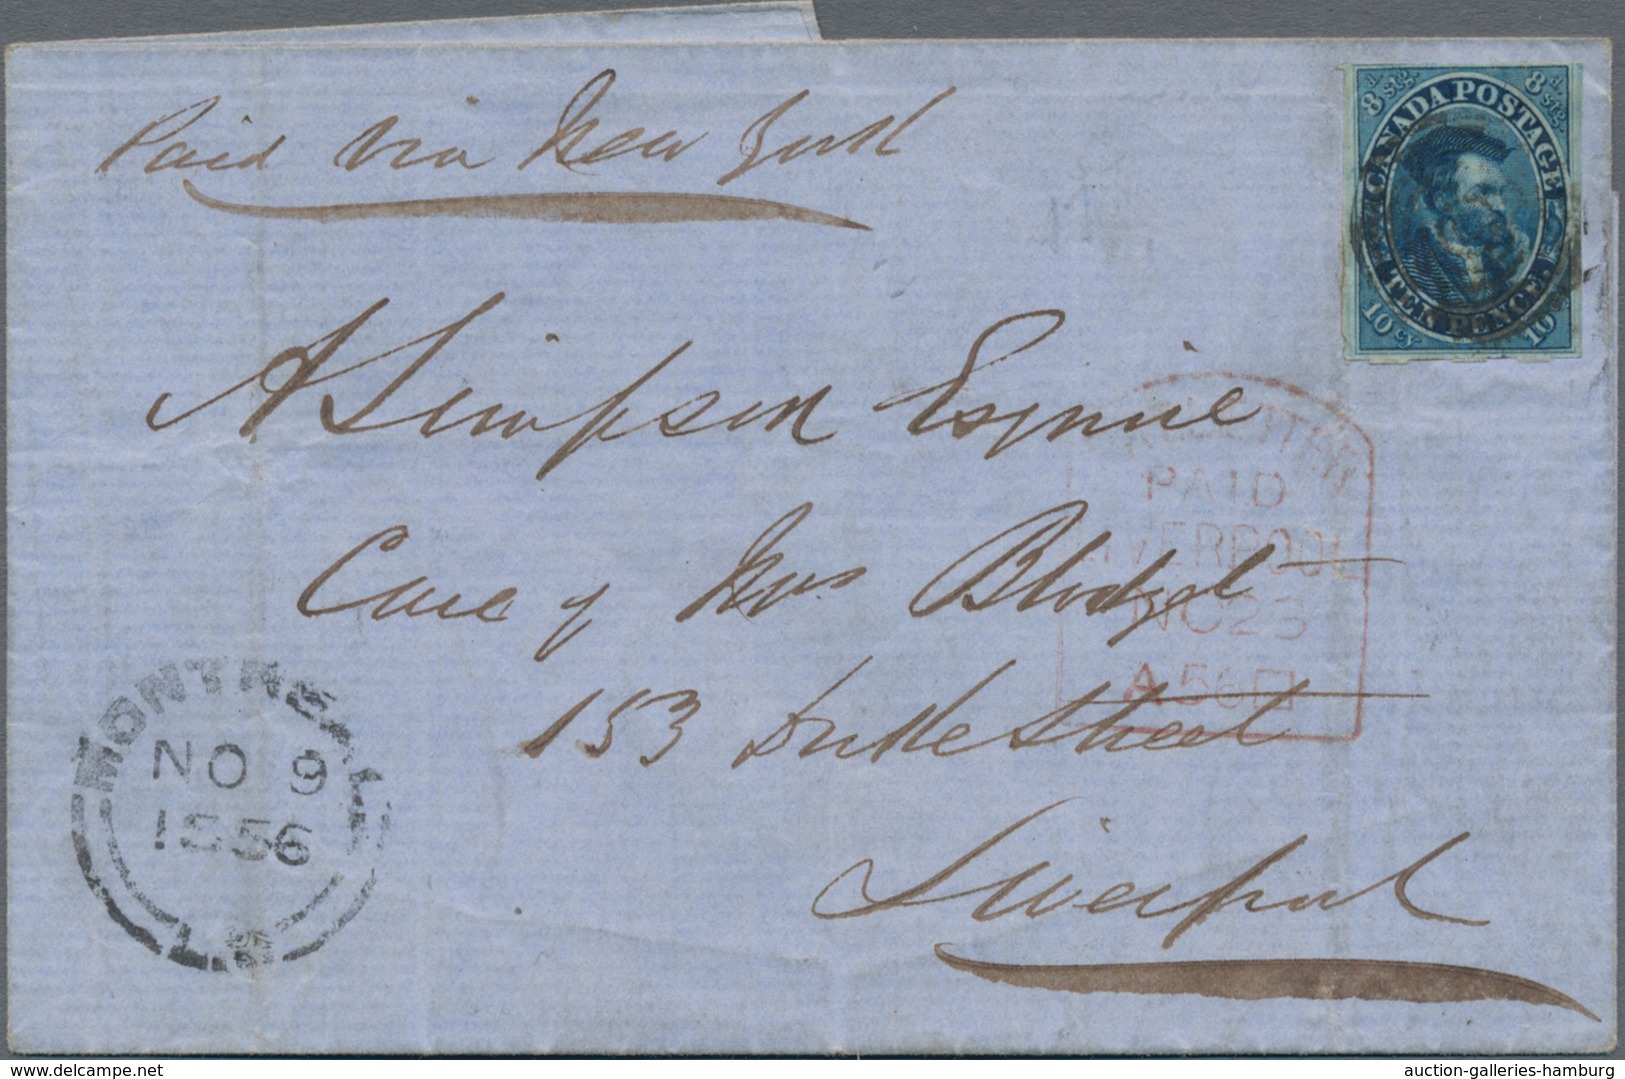 Paid via New York
8 d stg. 8 d. stg.
CANADA POSTAGE
TEN PENCE.
10 cy 10
A Simpson Esquire
PAID
LIVERPOOL
Care of Mrs Blodget
NO 23
A 56
153 Duke Street
MONTREAL
NO 9
1856
L.C
Liverpool
delcampe.net
auction-galleries-hamburg